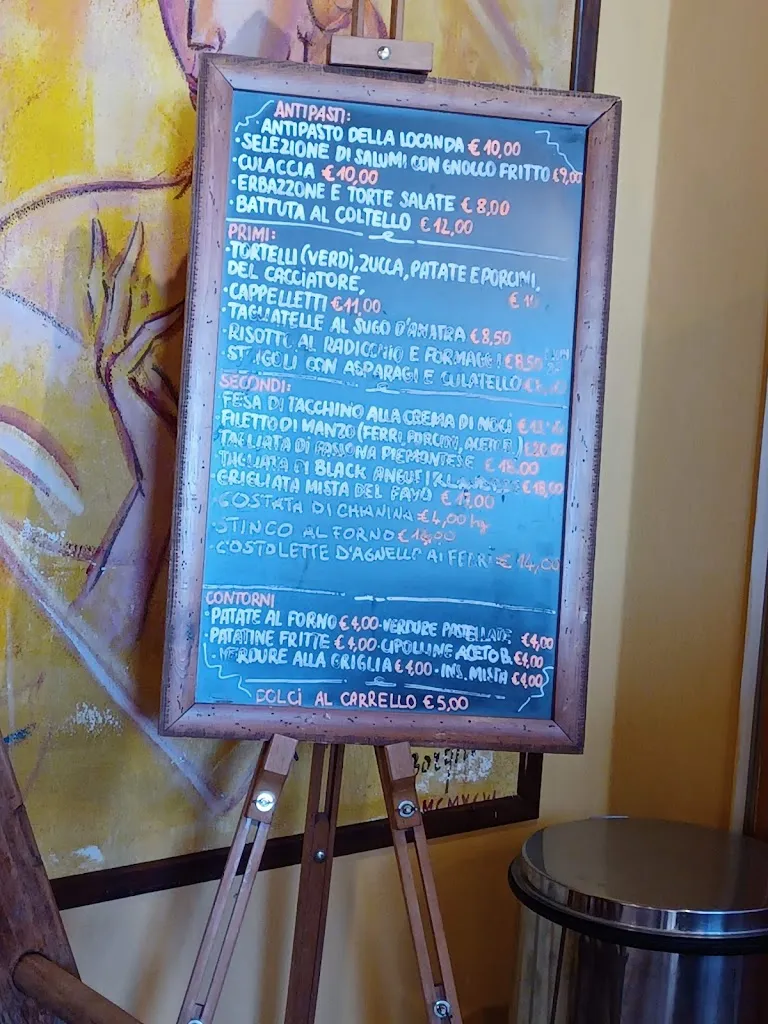 ANTIPASTI:
· ANTIPASTO DELLA LOCANDA € 10,00
· SELEZIONE DI SALUMI CON GNOCCO FRITTO €9,00
· CULACCIA € 10,00
· ERBAZZONE E TORTE SALATE € 8,00
· BATTUTA AL COLTELLO € 12,00
PRIMI:
· TORTELLI (VERDI, ZUCCA, PATATE E PORCINI,
DEL CACCIATORE,
· CAPPELLETTI €11,00
· TAGLIATELLE AL SUGO D'ANATRA €8,50
· RISOTTO AL RADICCHIO E FORMAGGI €8,50
CON ASPARAGI E CULATELLO
SECONDI:
FESA DI TACCHINO ALLA CREMA DI NOCI
· FILETTO DI MANZO (FERRI, PORCINI, ACETO B.) €20,00
TAGLIATA DI FASSONA PIEMONTESE € 18,00
TAGLIATA DI BLACK ANGUS €18,00
GRIGLIATA MISTA DEL €17,00
· COSTATA DI CHIANINA €4,00 hg
· STINCO AL FORNO
· COSTOLETTE D'AGNELLO AI FERRI € 14,00
CONTORNI
· PATATE AL FORNO €4,00 · VERDURE PASTELLATE €4,00
· PATATINE FRITTE €4,00 · CIPOLLINE ACETO B. €4,00
· VERDURE ALLA GRIGLIA €4,00 · INS. MISTA €4,00
DOLCI AL CARRELLO €5,00
MCMXCVI